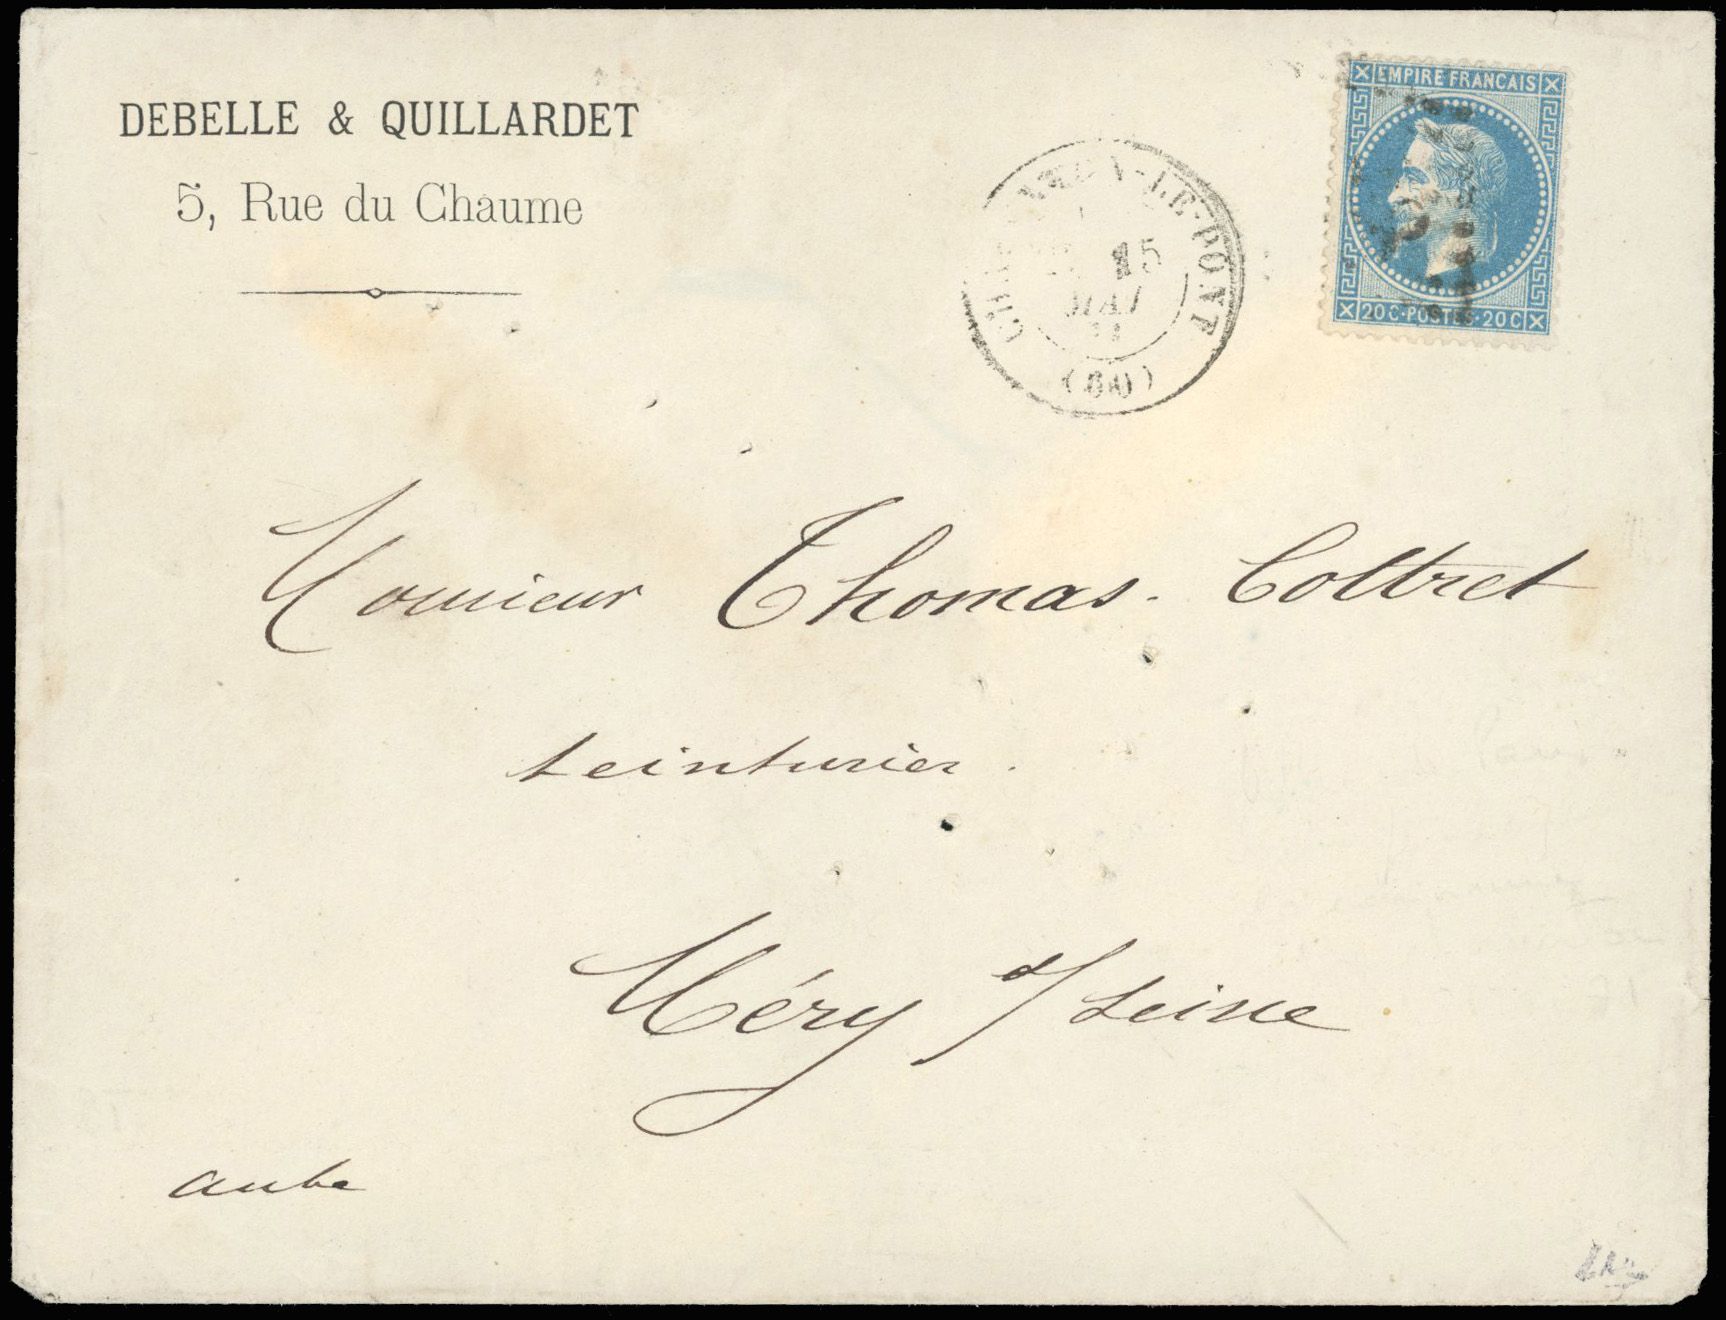 DEBELLE & QUILLARDET
5, Rue du Chaume
EMPIRE FRANCAIS
20 C · POSTES · 20 C
LE-PONT
15
MAI
(60)
Monsieur Thomas-Cottret
teinturier.
Méry s/ Seine
aube